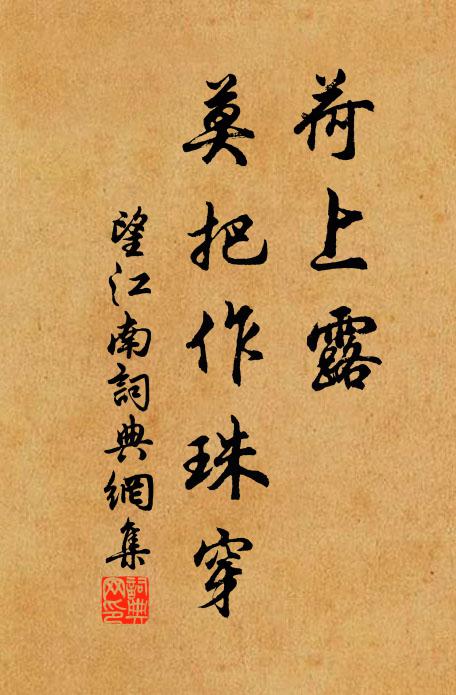 荷上露
莫把作珠穿
望江南詞典網集
詞典
网印